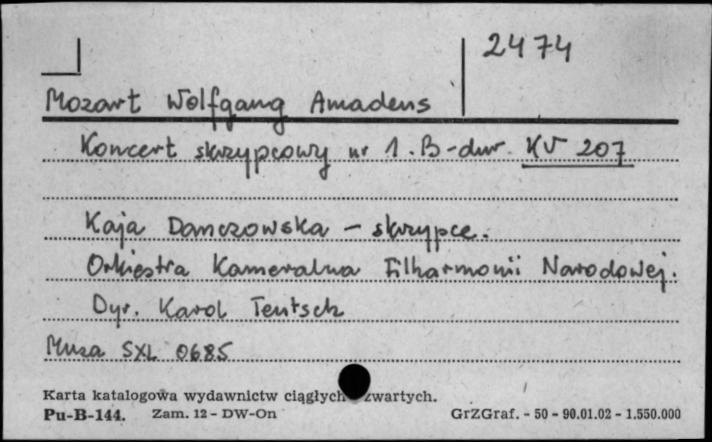 2474
Mozart Wolfgang Amadeus
Koncert skrzypcowy nr 1. B-dur KV 207
Kaja Danczowska – skrzypce.
Orkiestra Kameralna Filharmonii Narodowej.
Dyr. Karol Teutsch
Muza SXL 0685
Karta katalogowa wydawnictw ciągłych zwartych.
Pu-B-144. Zam. 12 - DW-On GrZGraf. - 50 - 90.01.02 - 1.550.000